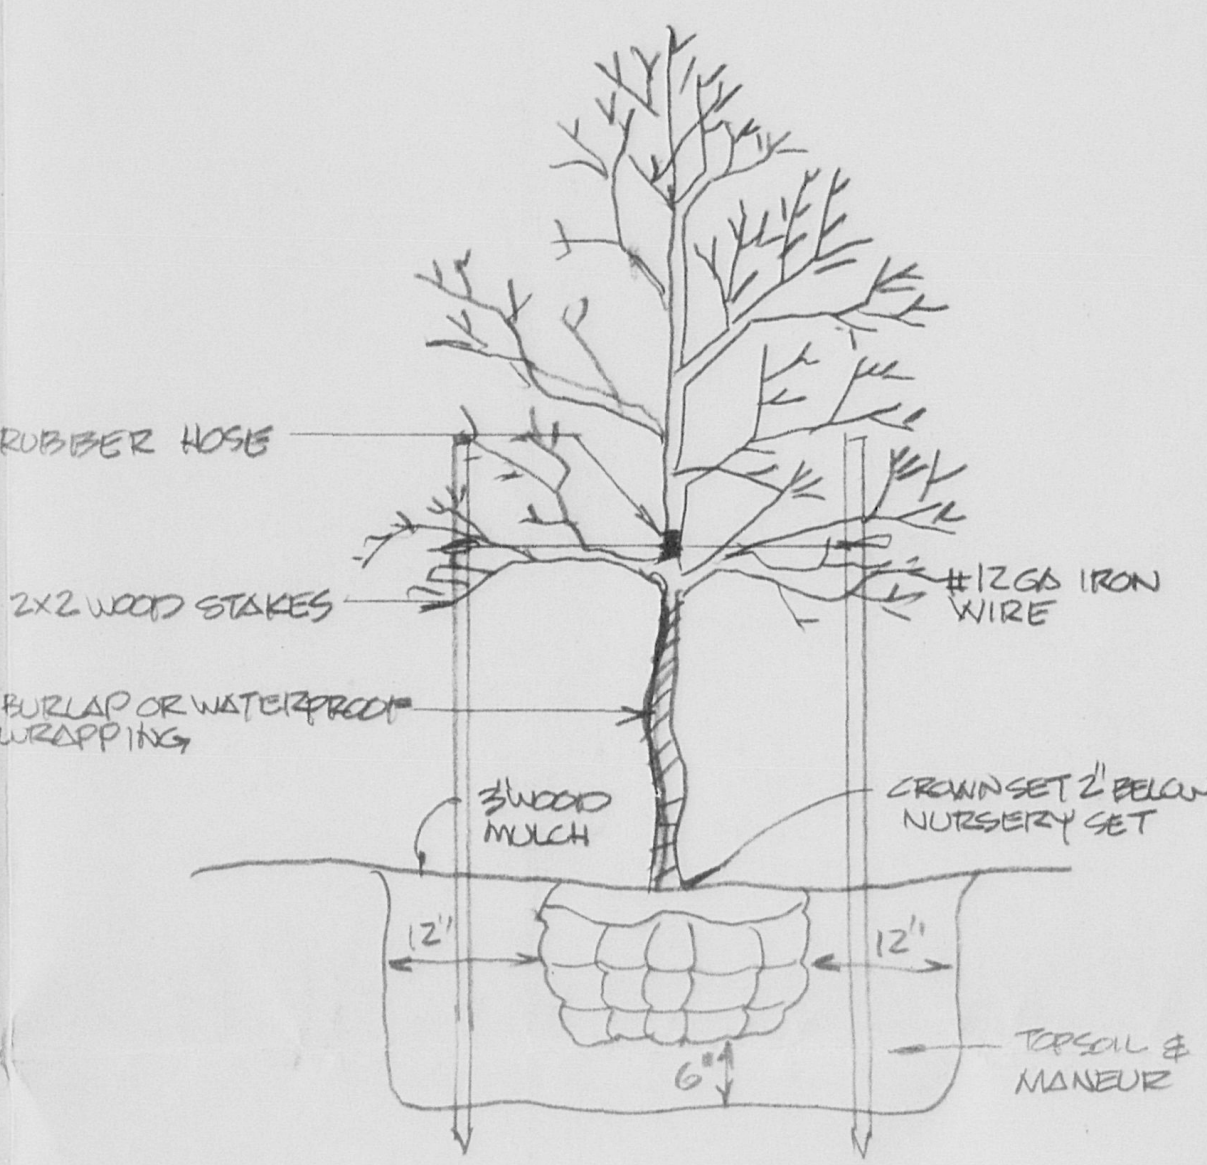 RUBBER HOSE
2X2 WOOD STAKES
#12 GA IRON
WIRE
BURLAP OR WATERPROOF
WRAPPING
3" WOOD
MULCH
CROWN SET 2" BELOW
NURSERY SET
12"
12"
6"
TOPSOIL &
MANEUR